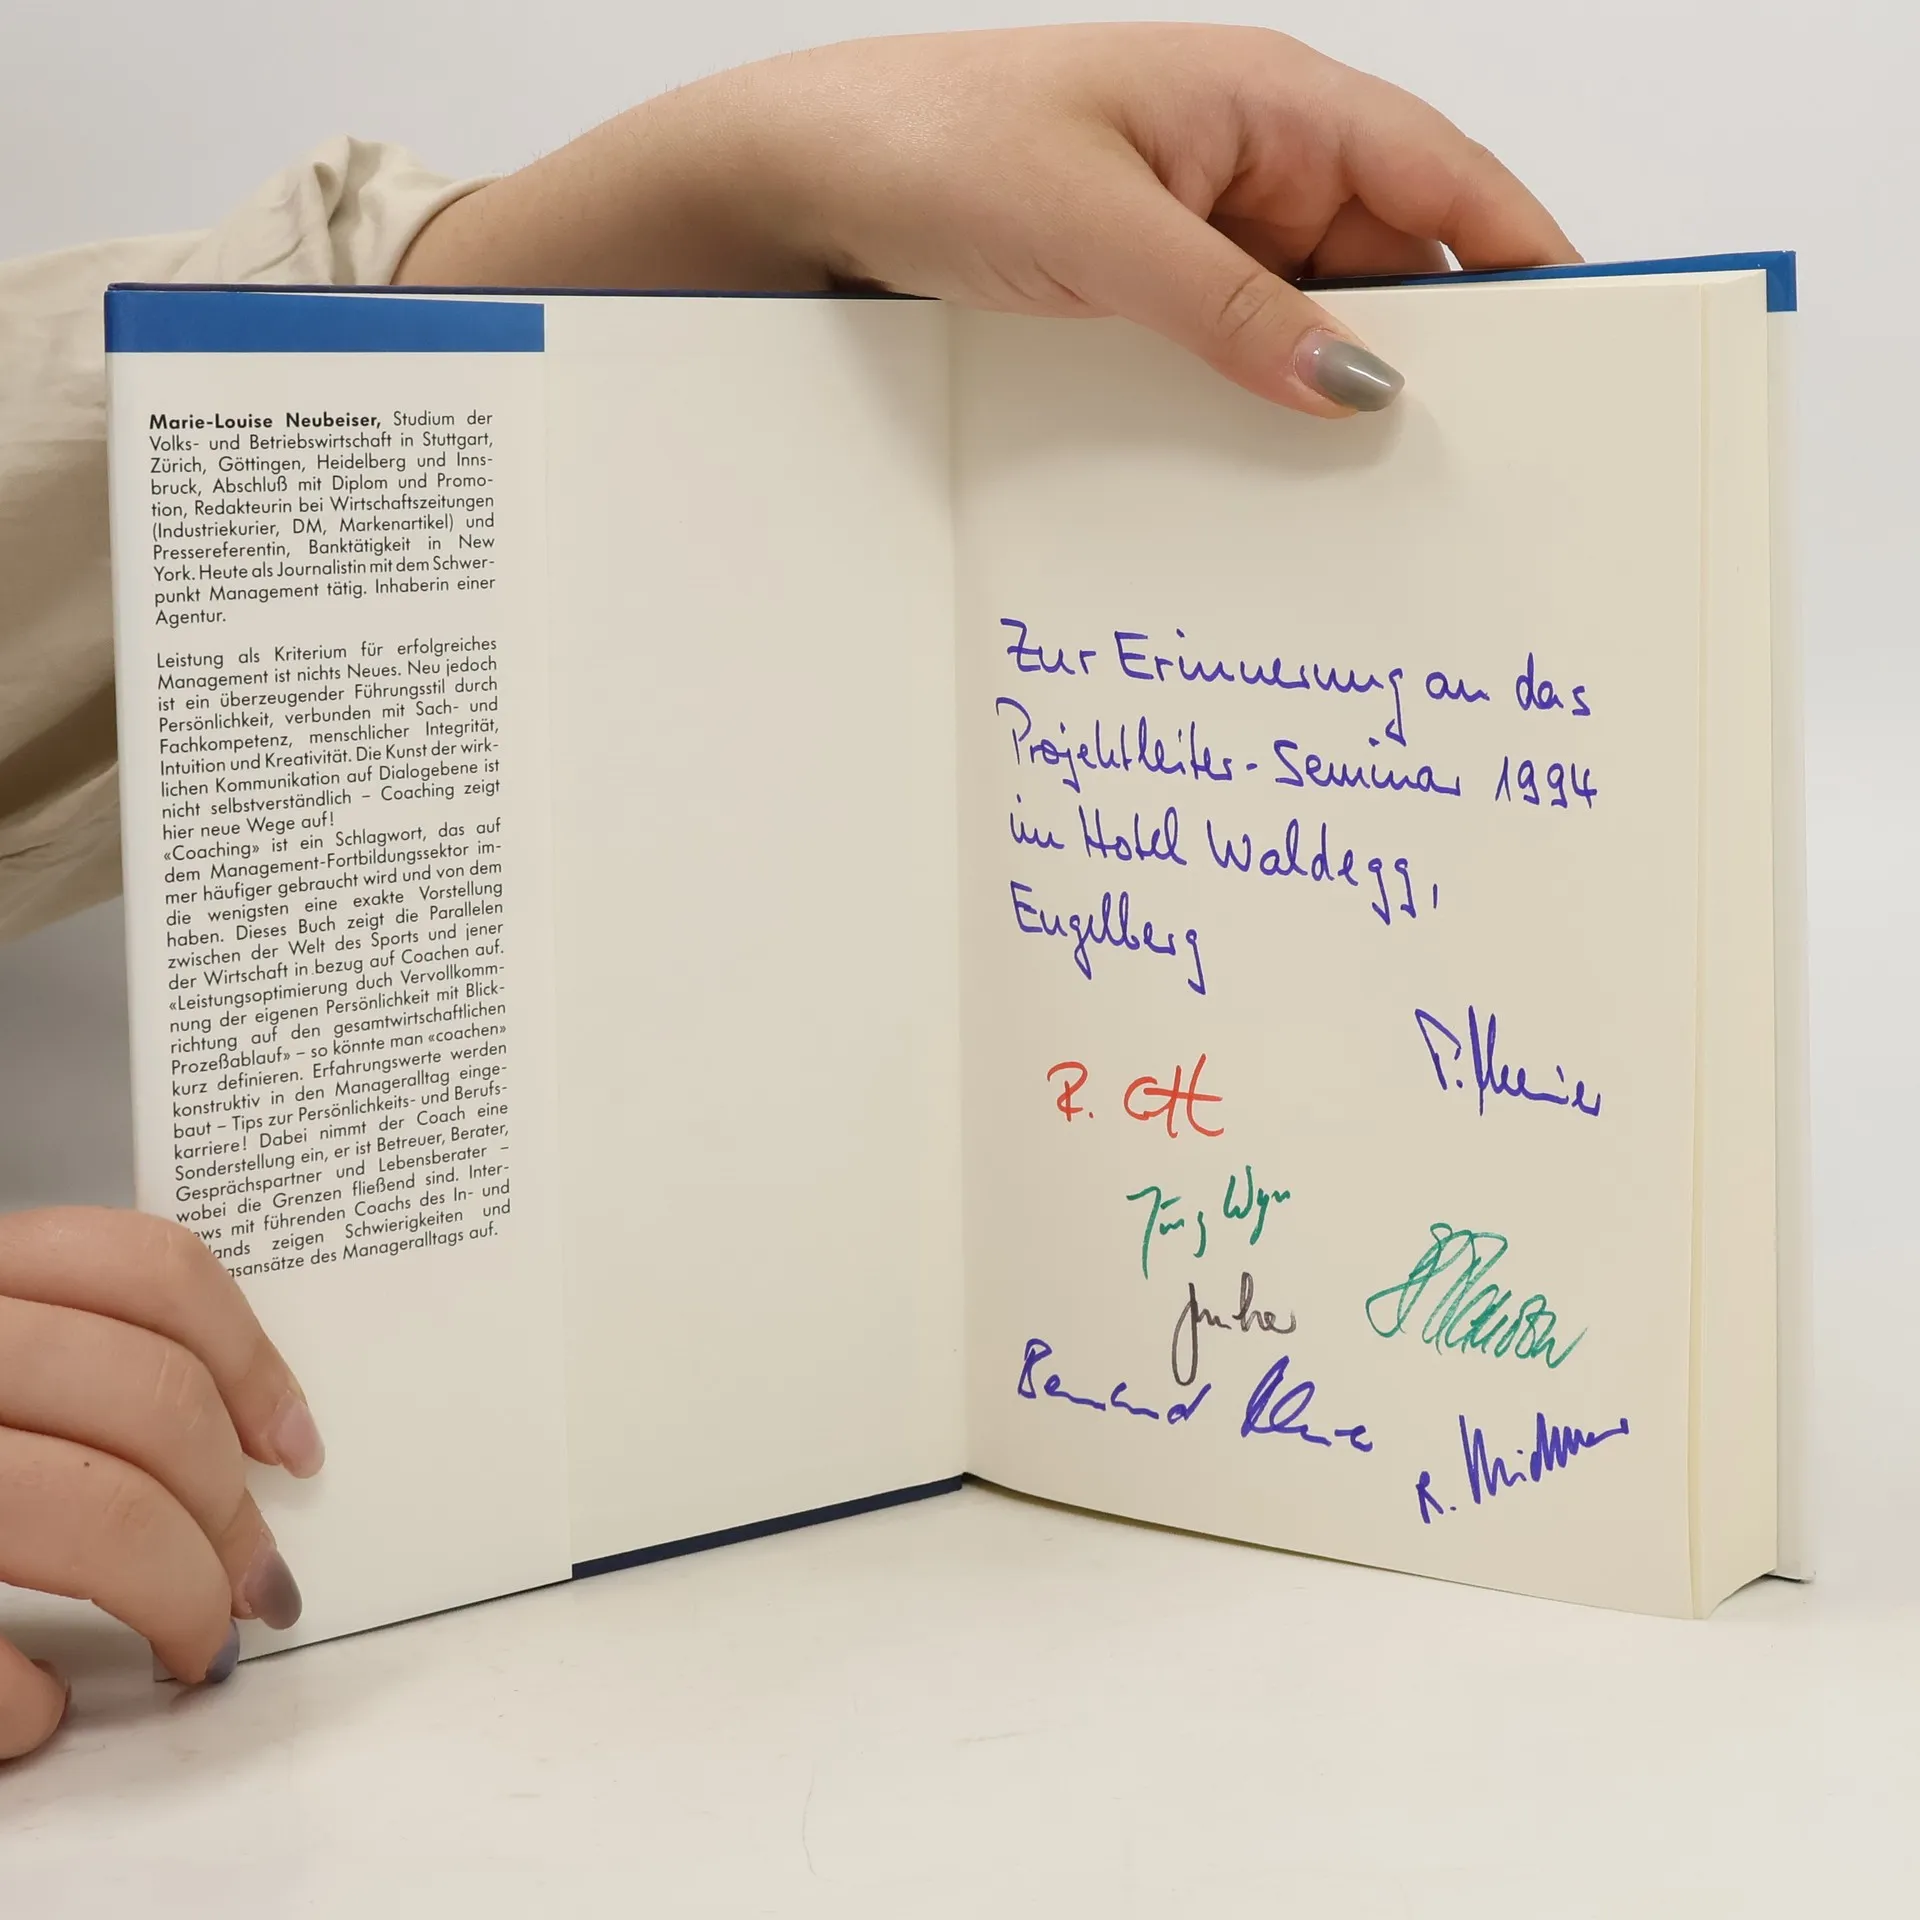 Marie-Louise Neubeiser, Studium der
Volks- und Betriebswirtschaft in Stuttgart,
Zürich, Göttingen, Heidelberg und Inns-
bruck, Abschluß mit Diplom und Promo-
tion, Redakteurin bei Wirtschaftszeitungen
(Industriekurier, DM, Markenartikel) und
Pressereferentin, Banktätigkeit in New
York. Heute als Journalistin mit dem Schwer-
punkt Management tätig. Inhaberin einer
Agentur.
Leistung als Kriterium für erfolgreiches
Management ist nichts Neues. Neu jedoch
ist ein überzeugender Führungsstil durch
Persönlichkeit, verbunden mit Sach- und
Fachkompetenz, menschlicher Integrität,
Intuition und Kreativität. Die Kunst der wirk-
lichen Kommunikation auf Dialogebene ist
nicht selbstverständlich – Coaching zeigt
hier neue Wege auf!
«Coaching» ist ein Schlagwort, das auf
dem Management-Fortbildungssektor im-
mer häufiger gebraucht wird und von dem
die wenigsten eine exakte Vorstellung
haben. Dieses Buch zeigt die Parallelen
zwischen der Welt des Sports und jener
der Wirtschaft in bezug auf Coachen auf.
«Leistungsoptimierung duch Vervollkomm-
nung der eigenen Persönlichkeit mit Blick-
richtung auf den gesamtwirtschaftlichen
Prozeßablauf» – so könnte man «coachen»
kurz definieren. Erfahrungswerte werden
konstruktiv in den Manageralltag einge-
baut – Tips zur Persönlichkeits- und Berufs-
karriere! Dabei nimmt der Coach eine
Sonderstellung ein, er ist Betreuer, Berater,
Gesprächspartner und Lebensberater –
wobei die Grenzen fließend sind. Inter-
ws mit führenden Coachs des In- und
lands zeigen Schwierigkeiten und
sansätze des Manageralltags auf.
Zur Erinnerung an das
Projektleiter-Seminar 1994
im Hotel Waldegg,
Engelberg
R. Ott
Bernard